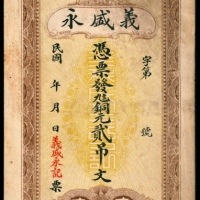 義盛永
字第 號
憑票發兌銅元貳吊文
民國 年 月 日
義盛永記
票